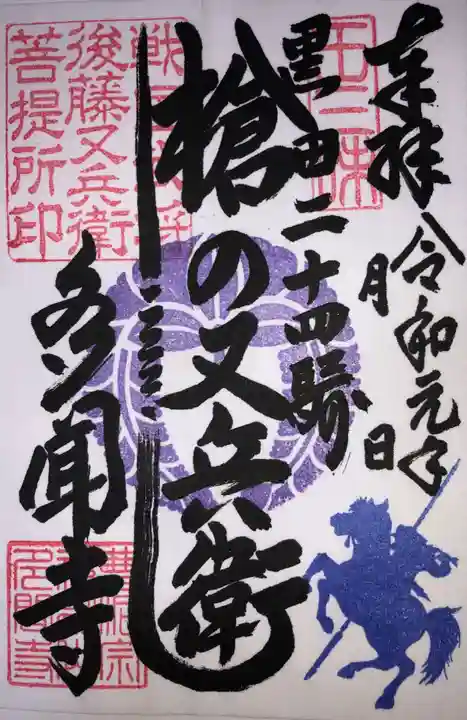 奉拝
令和元年
月 日
黒田二十四騎
槍の又兵衛
多聞寺
戦国武将
後藤又兵衛
菩提所印